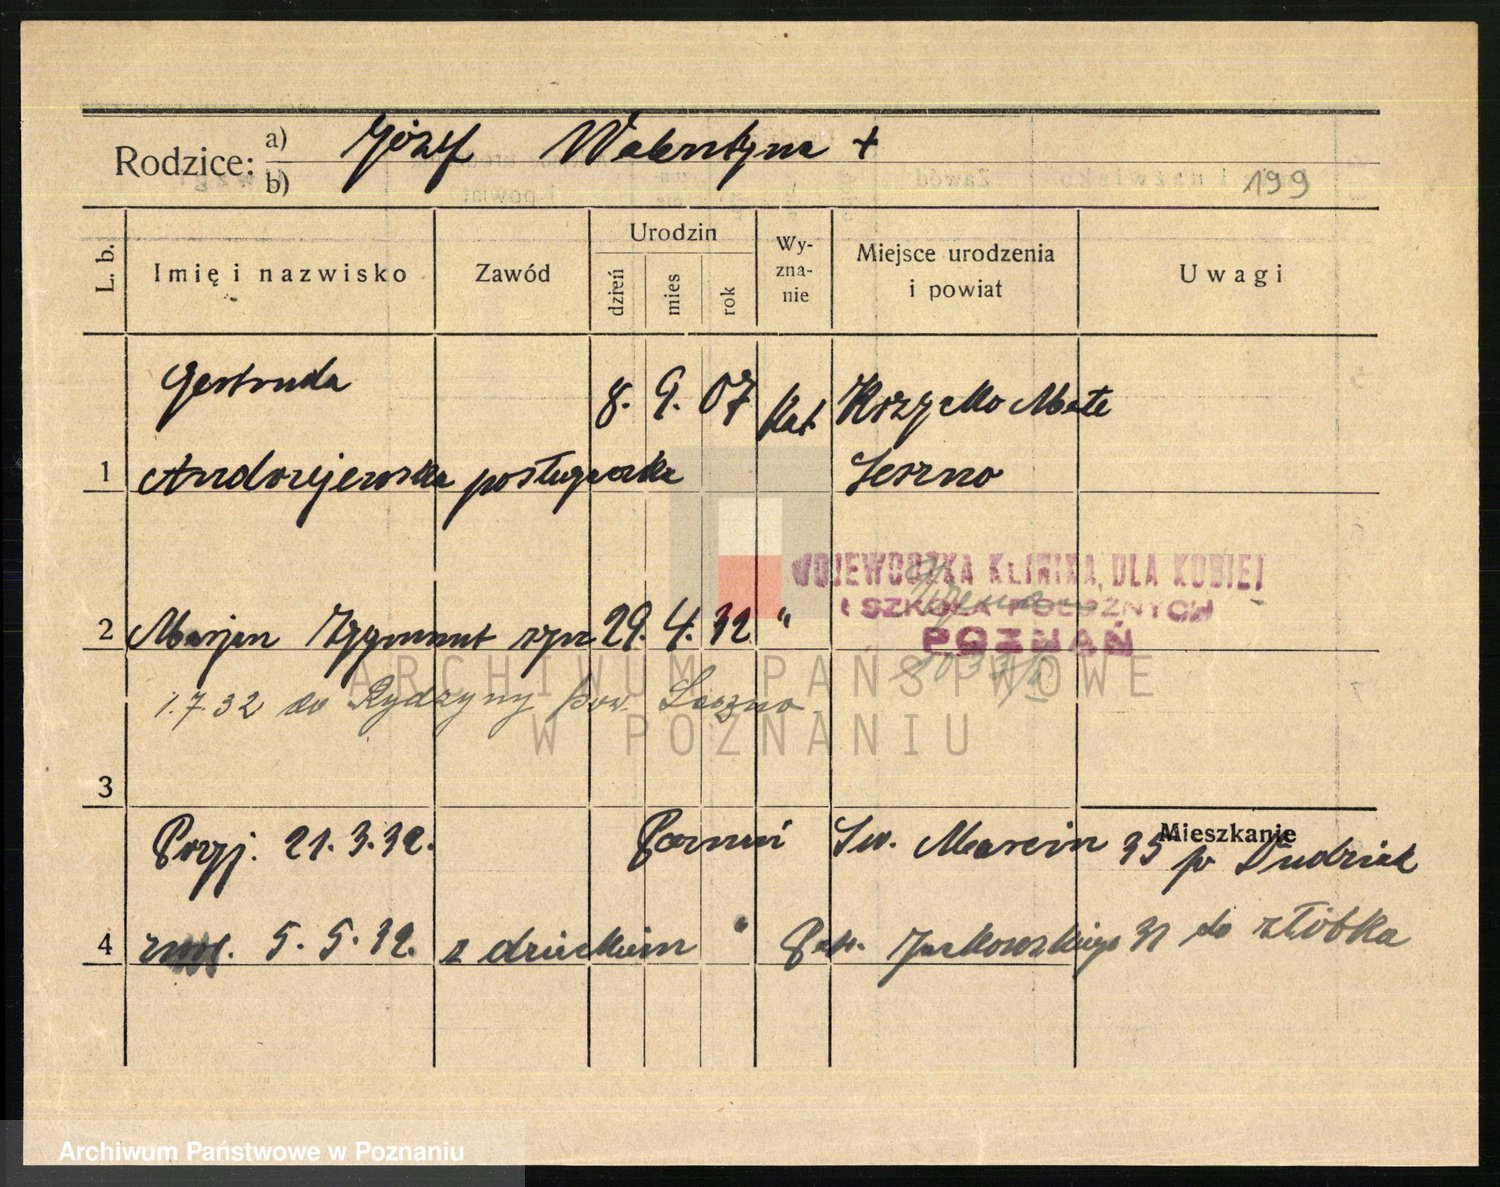 Rodzice: a) Józef Walentyna +
b)
199
L. b.
Imię i nazwisko
Zawód
Urodzin
dzień
mies
rok
Wy-
zna-
nie
Miejsce urodzenia
i powiat
Uwagi
Gertruda 8. 9. 07 kat Krzycko Małe
1 Andrzejewska posługaczka Leszno
WOJEWÓDZKA KLINIKA DLA KOBIET
I SZKOŁA POŁOŻNYCH
POZNAŃ
2 Marjan Zygmunt syn 29. 4. 32 "
1.7.32 do Rydzyny pow. Leszno
3
Mieszkanie
Przyj. 21. 3. 32. Poznań Św. Marcin 35 p Dudziak
4 5. 5. 32. z dzieckiem " Jackowskiego 31 do żłóbka
ARCHIWUM PAŃSTWOWE
W POZNANIU
Archiwum Państwowe w Poznaniu